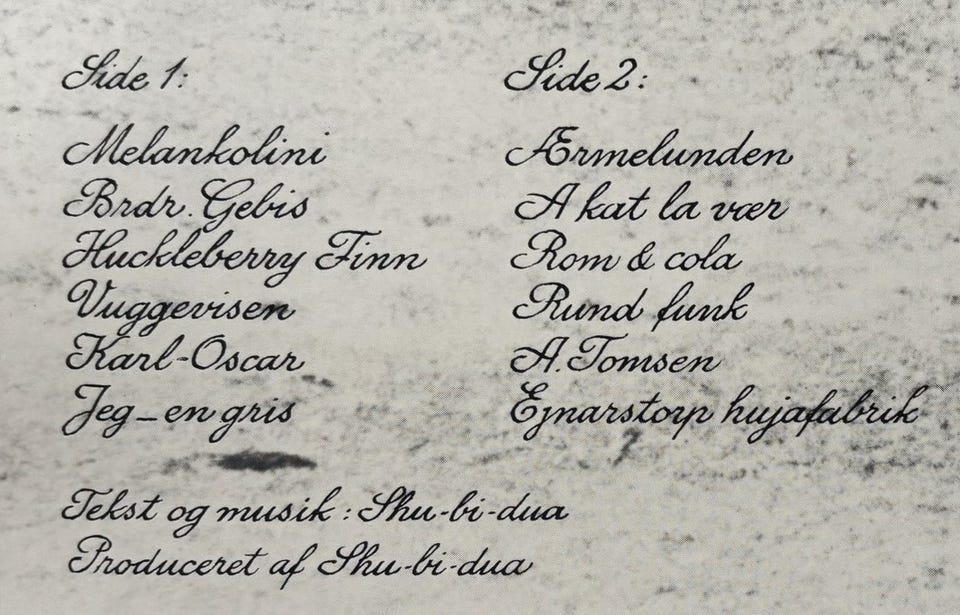 Side 1:
Melankolini
Brdr. Gebis
Huckleberry Finn
Vuggevisen
Karl-Oscar
Jeg - en gris
Side 2:
Ærmelunden
A kat la vær
Rom & cola
Rund funk
A. Tomsen
Ejnarstorp hujafabrik
Tekst og musik: Shu-bi-dua
Produceret af Shu-bi-dua